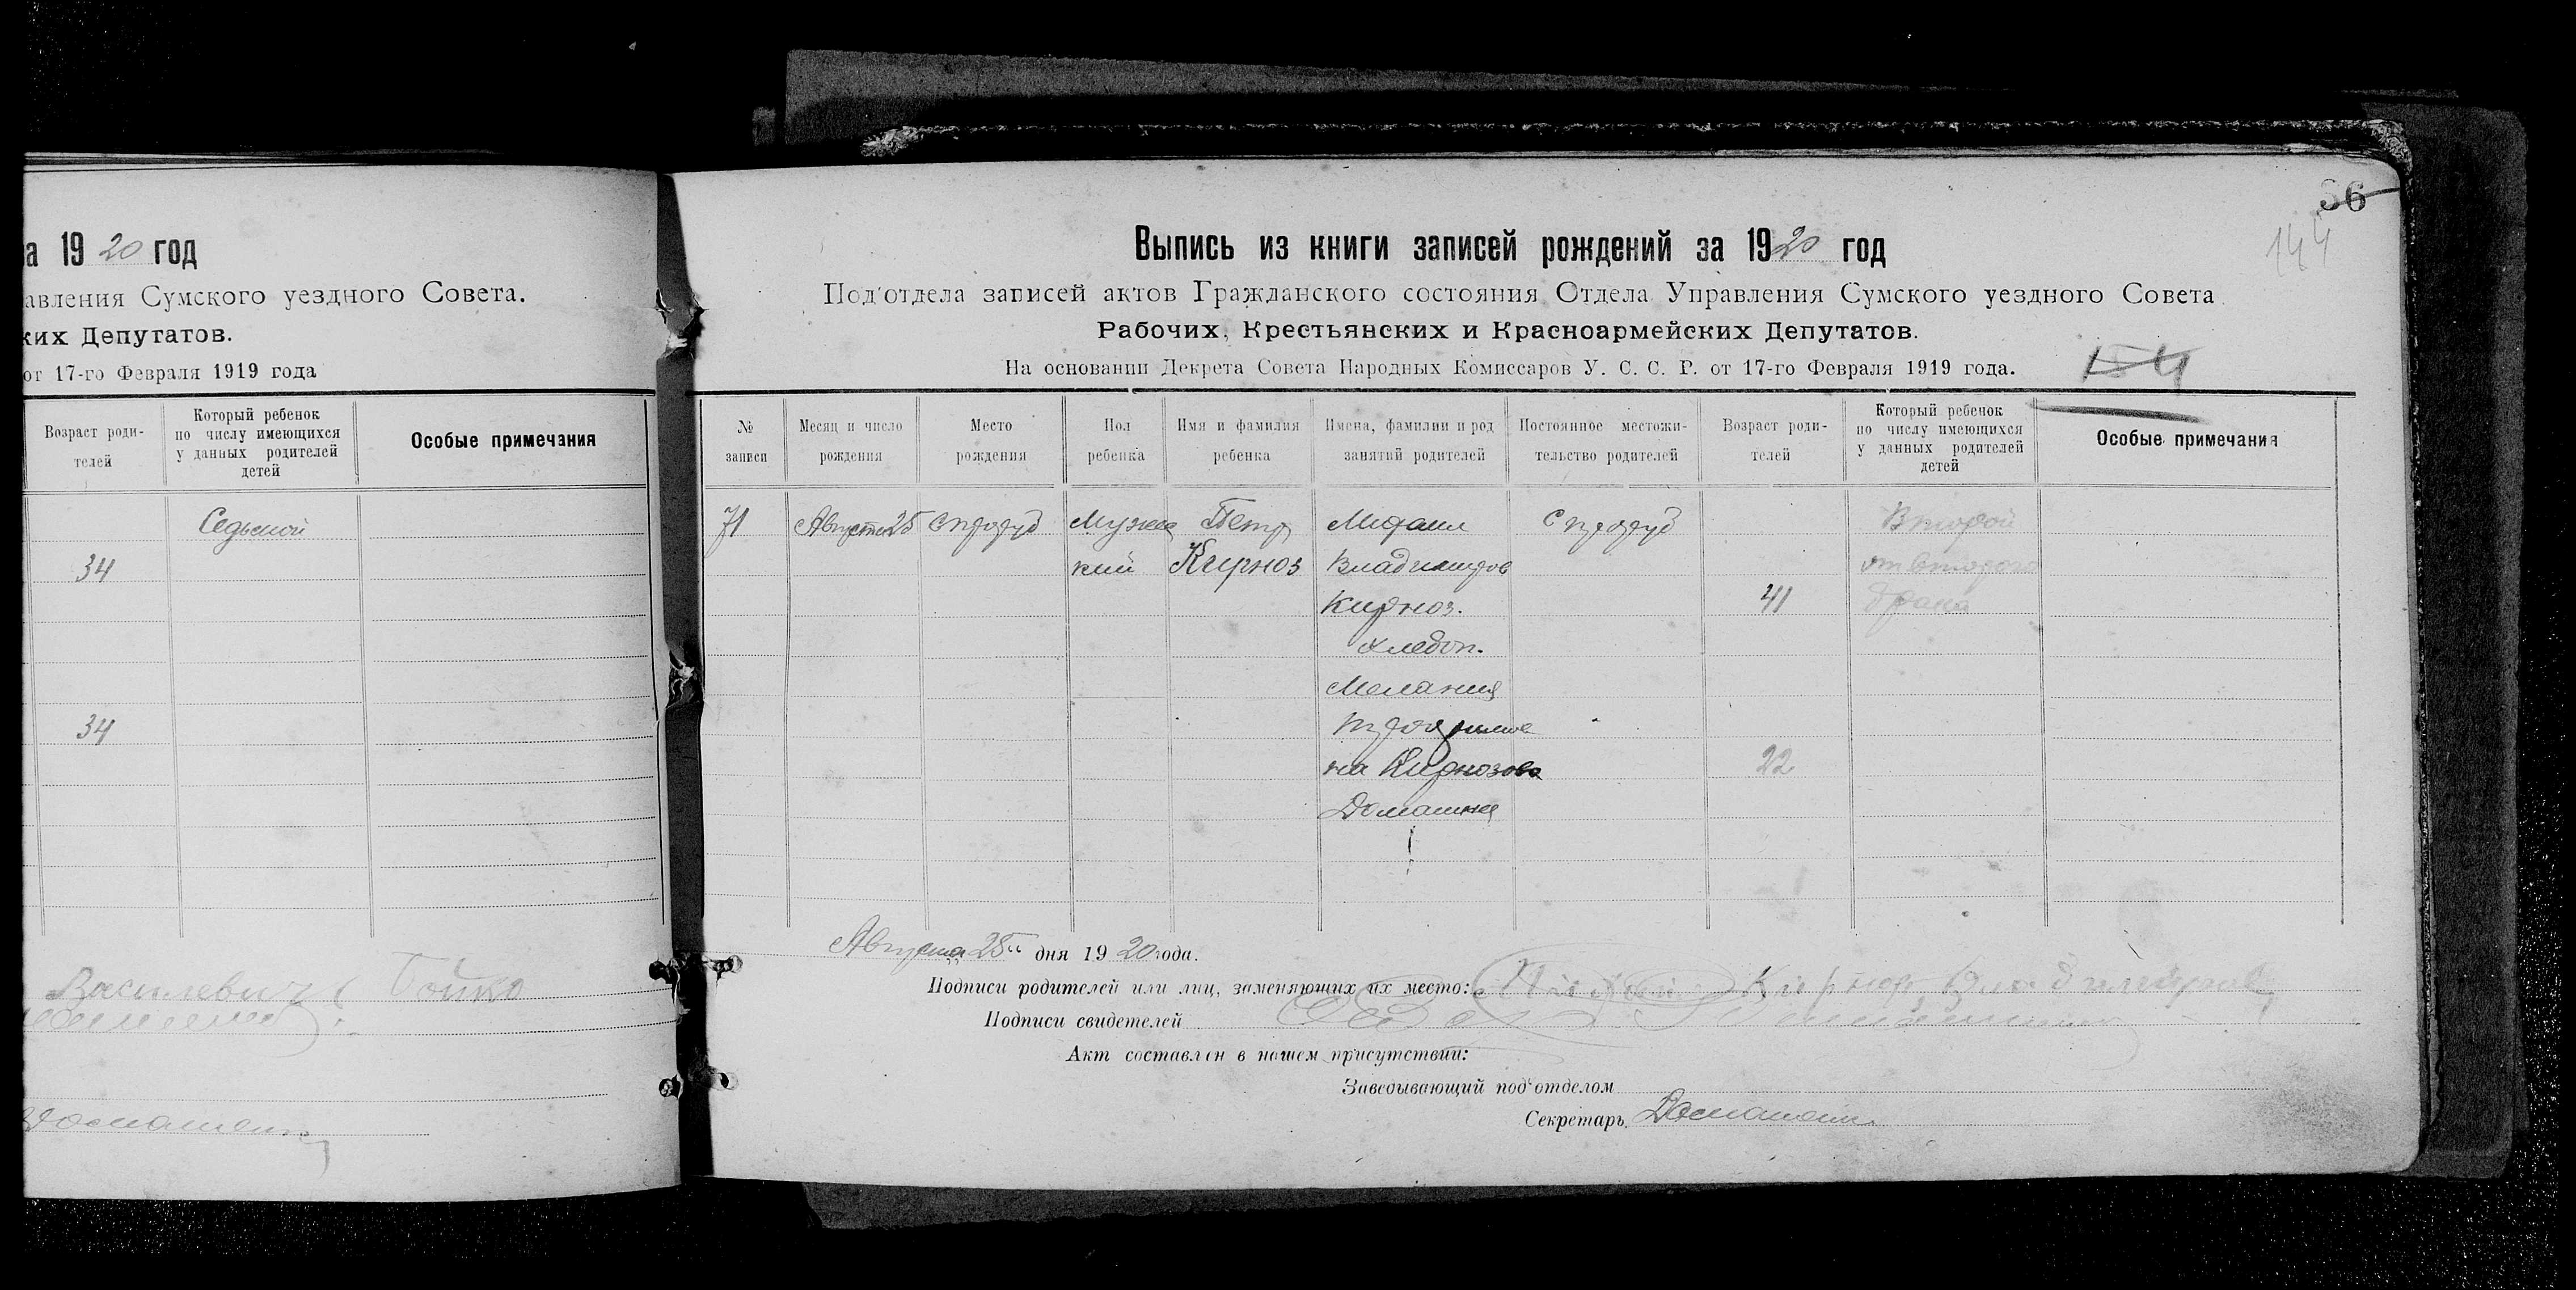 а 1920 год
авления Сумского уездного Совета.
ких Депутатов.
от 17-го Февраля 1919 года
Возраст роди-
телей
Который ребенок
по числу имеющихся
у данных родителей
детей
Особые примечания
Седьмой
34
34
Василевич Бойко
36
144
Выпись из книги записей рождений за 1920 год
Под'отдела записей актов Гражданского состояния Отдела Управления Сумского уездного Совета
Рабочих, Крестьянских и Красноармейских Депутатов.
На основании Декрета Совета Народных Комиссаров У. С. С. Р. от 17-го Февраля 1919 года.
№
записи
Месяц и число
рождения
Место
рождения
Пол
ребенка
Имя и фамилия
ребенка
Имена, фамилии и род
занятий родителей
Постоянное местожи-
тельство родителей
Возраст роди-
телей
Который ребенок
по числу имеющихся
у данных родителей
детей
Особые примечания
71
Августа 25
Мужс
кий
Петр
Кирноз
Владимиров
Кирноз.
хлебоп.
Мелания
на Кирнозова
Домашняя
41
22
Второй
от второго
брака
Августа 25" дня 1920 года.
Подписи родителей или лиц, заменяющих их место:
Подписи свидетелей
Акт составлен в нашем присутствии:
Заведывающий под'отделом
Секретарь